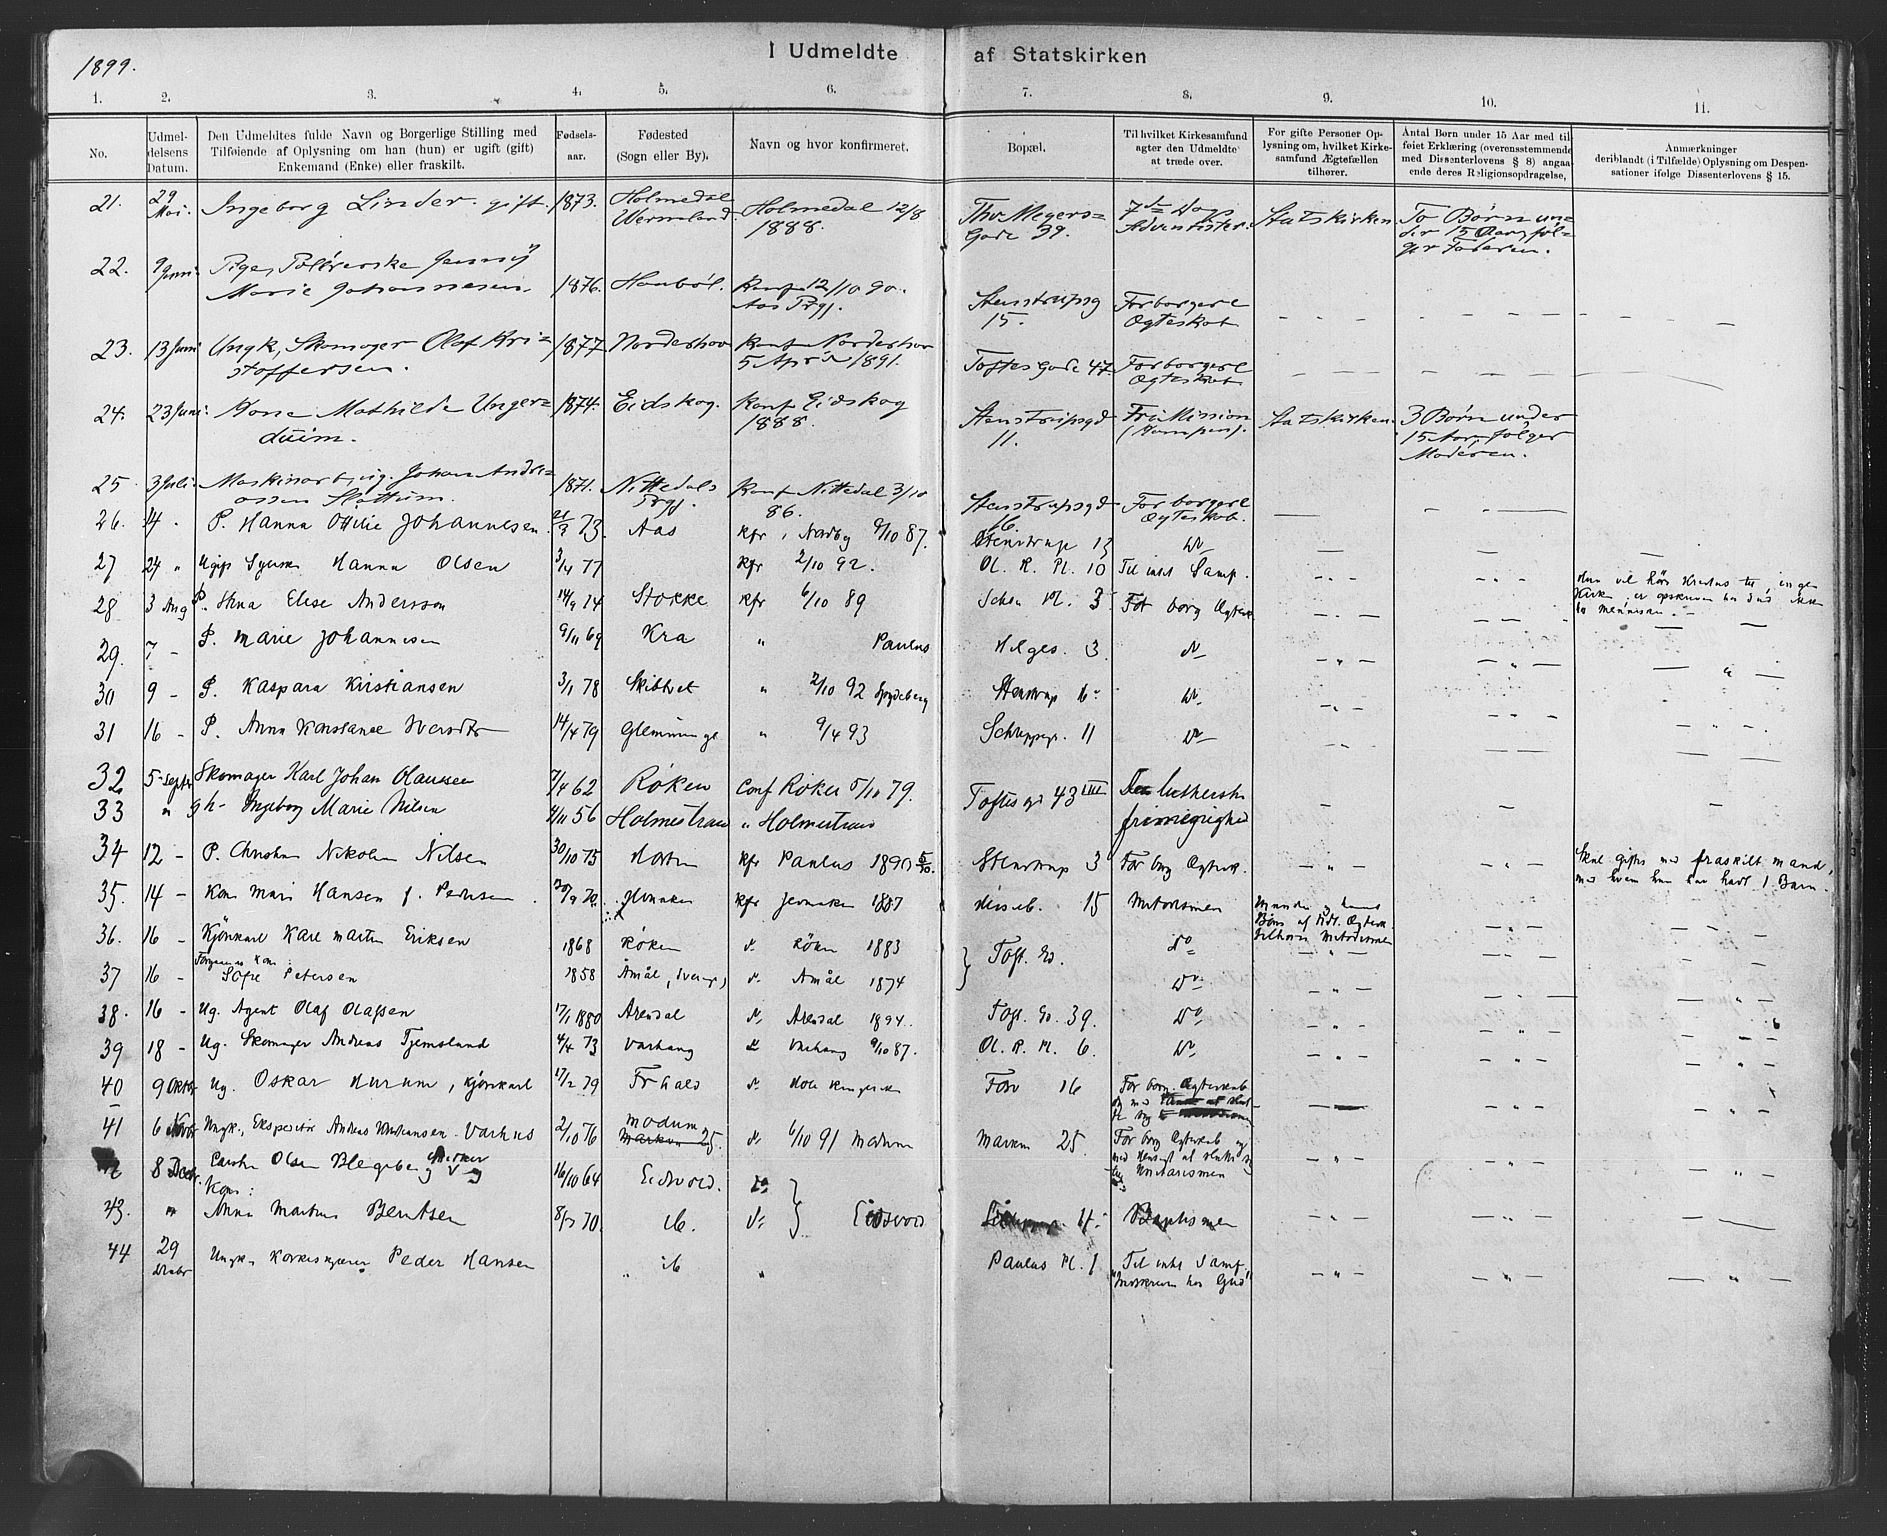 1899.
I Udmeldte af Statskirken
1. 2. 3. 4. 5. 6. 7. 8. 9. 10. 11.
No.
Udmel-
delsens
Datum.
Den Udmeldtes fulde Navn og Borgerlige Stilling med
Tilføiende af Oplysning om han (hun) er ugift (gift)
Enkemand (Enke) eller fraskilt.
Fødsels-
aar.
Fødested
(Sogn eller By).
Navn og hvor konfirmeret.
Bopæl.
Til hvilket Kirkesamfund
agter den Udmeldte
at træde over.
For gifte Personer Op-
lysning om, hvilket Kirke-
samfund Ægtefællen
tilhører.
Antal Børn under 15 Aar med til-
føiet Erklæring (overensstemmende
med Dissenterlovens § 8) angaa-
ende deres Religionsopdragelse,
Anmærkninger
deriblandt (i Tilfælde) Oplysning om Despen-
sationer ifølge Dissenterlovens § 15.
21. 29 Mai. Ingeborg Linder. gift. 1873. Holmedal Wermland. Holmedal 12/8 1888. Thv. Meyers= Gade 39. 7de Dags Adventister. Statskirken. To Børn un= der 15 Aar, føl= ger Faderen.
22. 9 Juni. Pige, Jenny Marie Johannesen. 1876. Haabøl. Konf 12/10 90. Aas Prgj. Stenstrupsg 15. For borgerl Ægteskab
23. 13 Juni Ungk, Skomager Olaf Kri= stoffersen. 1877 Norderhov Konf Norderhov 5 April 1891. Toftes Gade 47. For borgerl Ægteskab
24. 23 Juni. Kone Mathilde Unger= 1874. Eidskog. Konf Eidskog 1888. Stenstrupsgd 11. Fri Mission (Kampen). Statskirken. 3 Børn under 15 Aar, følger Moderen.
25 3 Juli. Maskinarbeid. Johan Andre= assen Slattum. 1871. Nittedals Prgj. Konf Nittedal 3/10 86. Stenstrupsgd 16. For borgerl Ægteskab.
26. 14. P. Hanna Ottilie Johannesen. 21/9 73 Aas kfr i Nordby 9/10 87. Stenstrup 13 do
27 24 " Ugift Syerske Hanna Olsen 3/4 77 kfr 2/10 92. Ol. R. Pl. 10 Til intet Samf.
28 3 Aug P. Stina Elise Andersson 14/9 74 Stokke kfr 6/10 89 Schou Pl. 3 For borg Ægtesk
29. 7 - P. Marie Johannesen 9/11 69 Kra " Paulus Helges. 3. do
30 9 - P. Kaspara Kirstiansen 3/1 78 Skibtvet " 2/10 92 Spydeberg Stenstrup 6 do
31 16 - P. Anna Konstance 14/4 79 Glemminge " 9/4 93 Schuppegr. 11 do
32. 5 septr Skomager Karl Johan Olausen 7/4 62 Røken Conf Røken 5/10 79. Toftes gd 43 IIII Den lutherske frimenighed
33 " gh - Ingeborg Marie Nilsen 4/11 56 Holmestrand " Holmestrand
34 12 - P. Nikoline Nilsen 30/10 75 Horten kfr Paulus 1890 5/10. Stenstrup 3 For borg Ægtesk. Skal giftes med fraskilt mand, med hvem hun har havt 1 Barn.
35. 14 - Kone Mari Hansen f. Pedersen 20/9 70. Jevnaker kfr Jevnaker 1887 15 Metodismen Manden og hans Børn af tidl. Ægtesk. tilhører Metodismen
36. 16 - Kjørekarl Karl Martin Eriksen 1868 Røken d. Røken 1883 Toft. Gd. Do
37 16 - Foregaaendes Kone: Sofie Petersen 1858 Åmål, Sverig, d. Åmål 1874 Do
38. 16 - Ug. Agent Olaf Olafsen 17/1 1880 Arendal d. Arendal 1894. Toft. Gd. 39. Do
39 18 - Ug. Skomager Andreas Tjemsland 4/4 73 Varhaug d. Varhaug 9/10 87. Ol. R. Pl. 6. Do
40 9 Oktbr Ug. Oskar Hurum, Kjørekarl 17/2 79 Fr hald d. Hole Ringerike Foss 16 For borg. Ægteskab
41 6 Novbr Ungk, Ekspeditør Andreas Varhus 2/10 76 Modum d. 6/10 91 Modum Marken 25. For borg Ægteskab og med Hensigt at slutte sig til Unitarismen
8 Decbr. Olsen Blegeberg 16/10 64 Eidsvold. do
43. " Kone: Anna Martine Berntsen 8/7 70. ib. d. Eidsvold 4. Baptismen
44 29 Decbr Ungk. Korkeskjærer Peder Hansen " ib " Paulus Pl. 1 Til intet Samf. "Mormonerne har Gud"